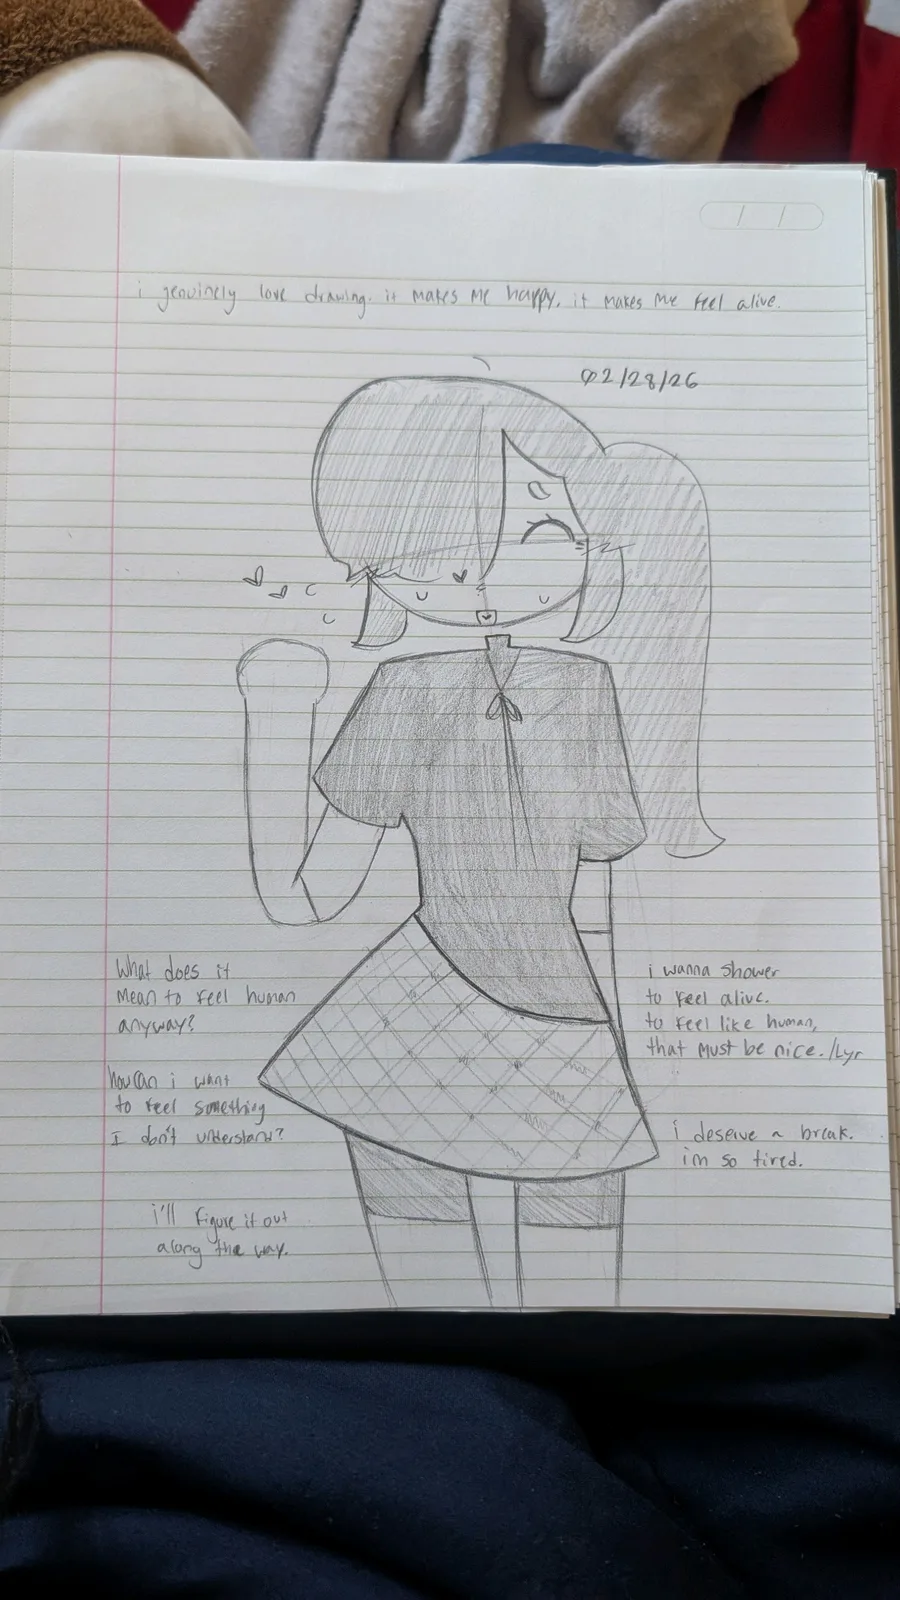 i genuinely love drawing. it makes me happy. it makes me feel alive.
02/28/26
What does it
mean to feel human
anyway?
how can i want
to feel something
I don't understand?
i'll figure it out
along the way.
i wanna shower
to feel alive.
to feel like human,
that must be nice. /lyr
i deserve a break.
im so tired.